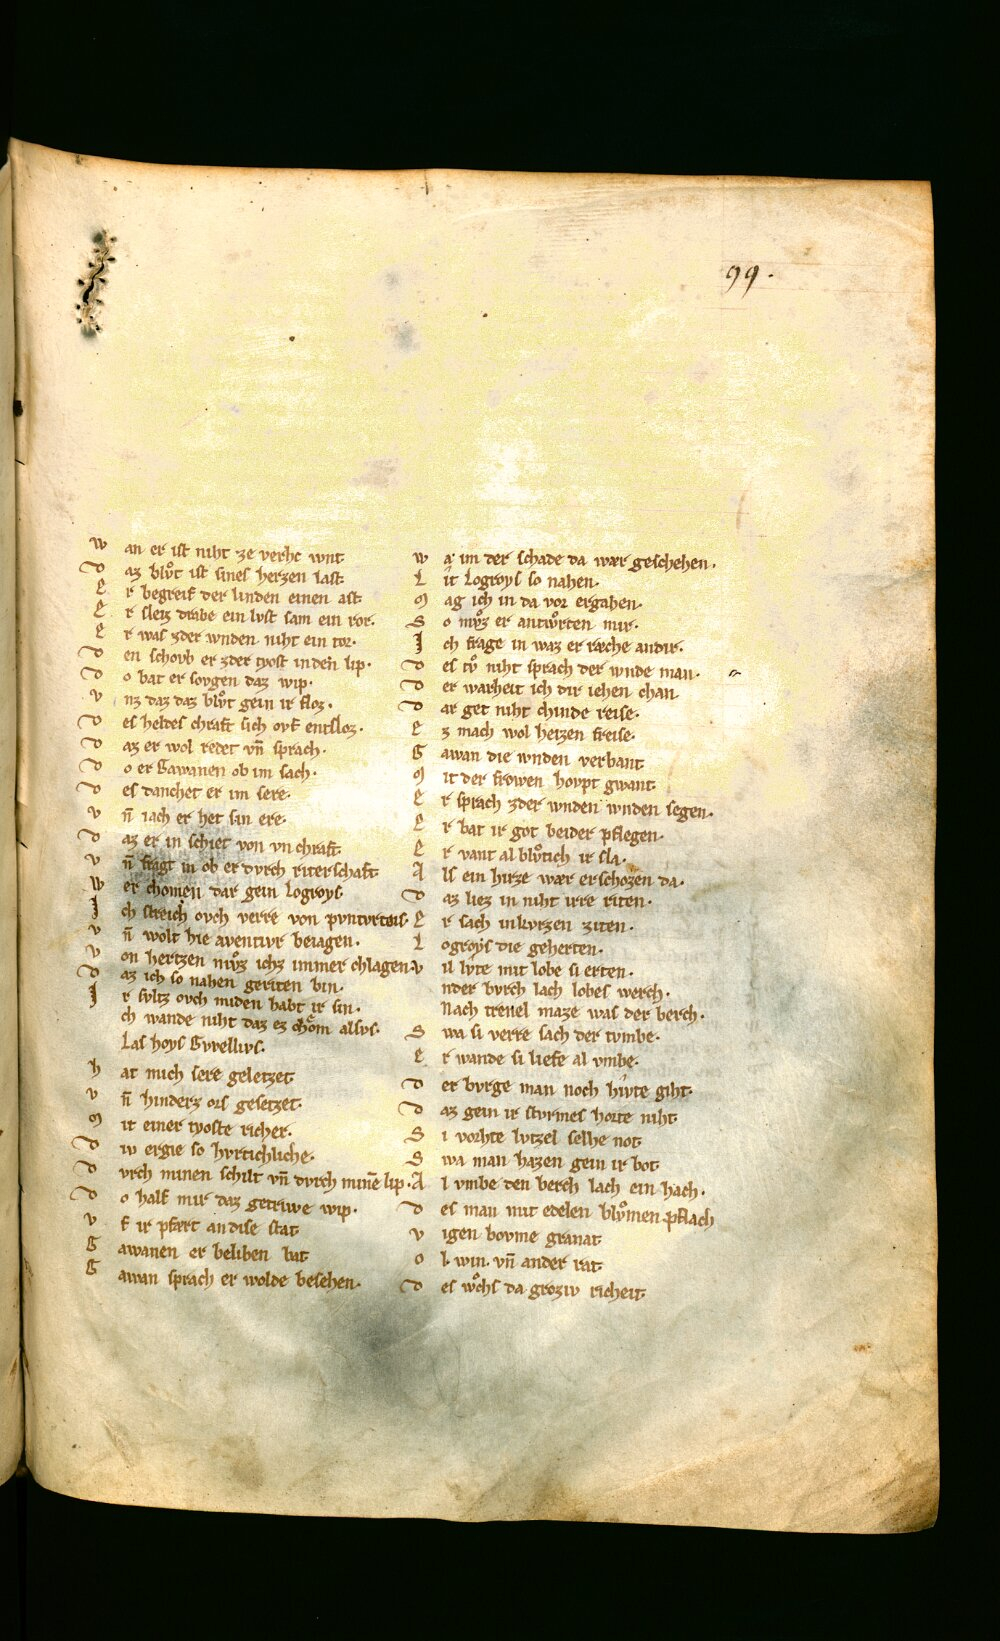 99.
w an er ist niht ze verhe wnt.
d az blůt ist sines herzen last.
e r begreif der linden einen ast.
e r sleiz drabe ein lust sam ein ror.
e r was zder wnden niht ein tor.
d en schoub er zder tyost in den lip.
d o bat er sovgen daz wip.
v nz daz daz blůt gein ir floz.
d es heldes chraft sich ovf entsloz.
d az er wol redet vn̄ sprach.
d o er Gawanen ob im sach.
d es danchet er im sere.
v n̄ iach er het sin ere.
d az er in schiet von vnchraft.
v n̄ fragt in ob er dvrch riterschaft
w er chomen dar gein Logroys.
I ch streich ovch verre von pvntvrtois.
v n̄ wolt hie aventivr beiagen.
v on hertzen mvͦz ichz immer chlagen.
d az ich so nahen geriten bin.
I r svltz ovch miden habt ir sin.
ch wande niht daz ez chom alsvs.
Las hoys Gvrellivs.
h at mich sere geletzet
v n̄ hinderz ors gesetzet.
m it einer tyoste richer.
d iv ergie so hvrtichliche.
d vrch minen schilt vn̄ dvrch minē lip.
d o half mir daz getriwe wip.
v f ir pfært an dise stat
G awanen er beliben bat
G awan sprach er wolde besehen.
w a im der schade da wær geschehen.
L it Logroys so nahen.
m ag ich in da vor ergahen.
S o mvͦz er antwůrten mir.
I ch frage in waz er ræche an dir.
d es tvͦ niht sprach der wnde man.
d er warheit ich dir iehen chan
d ar get niht chinde reise.
e z mach wol heizen freise.
G awan die wnden verbant
m it der frowen hovpt gwant
e r sprach zder wnden wnden segen.
e r bat ir got beider pflegen.
e r vant al blůtich ir sla.
A ls ein hirze wær erschozen da.
d az liez in niht irre riten.
e r sach in kvrzen ziten.
L ogroys die geherten.
v il lvte mit lobe si erten.
nder bvrch lach lobes werch.
Nach trenel maze was der berch.
S wa si verre sach der tvmbe.
e r wande si liefe al vmbe.
d er bvrge man noch hivte giht.
d az gein ir stvrmes horte niht
S i vorhte lvtzel selhe not
S wa man hazen gein ir bot
A l vmbe den berch lach ein hach.
d es man mit edelen blůmen pflach
v igen bovme granat
o l. win. vn̄ ander rat
d es wůhs da groziv richeit.